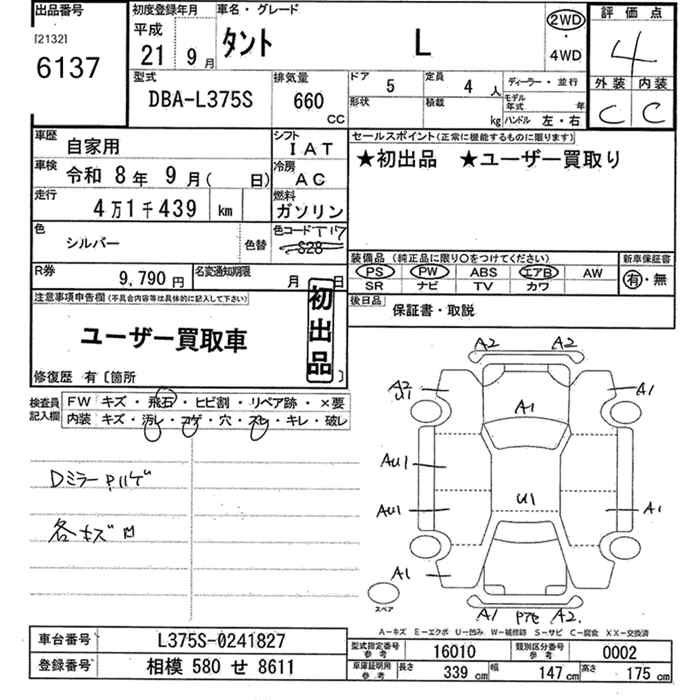 出品番号
[2132]
6137
初度登録年月
平成
21 9月
車名・グレード
タント L
2WD
・
4WD
評価点
4
外装 内装
C C
型式
DBA-L375S
排気量
660
CC
ドア 5
定員 4 人
ディーラー・並行
形状
積載 kg
モデル年式 年
ハンドル 左・右
車歴
自家用
シフト
IAT
車検 令和 8年 9月( 日)
冷房
AC
走行
4万1千439 km
燃料
ガソリン
色
シルバー
色替
色コード T17
S28
セールスポイント(正常に機能するものに限ります)
★初出品 ★ユーザー買取り
装備品 (純正品に限り○をつけてください)
PS PW ABS エアB AW
SR ナビ TV カワ
新車保証書
有・無
R券
9,790 円
名変通知期限
月 日
後日品
保証書・取説
注意事項申告欄(不具合内容等は具体的に記入して下さい)
ユーザー買取車
初出品
修復歴 有〔箇所 〕
検査員記入欄
FW キズ・飛石・ヒビ割・リペア跡・×要
内装 キズ・汚レ・コゲ・穴・スレ・キレ・破レ
Dミラーハゲ
各キズ凹
A2 A2
A2
U1
A1
A1
AU1
U1
AU1
A1
A1
A1 P7e A2
スペア
A-キズ E-エクボ U-凹み W-補修跡 S-サビ C-腐食 XX-交換済
車台番号
L375S-0241827
登録番号
相模 580 せ 8611
型式指定番号 参考
16010
類別区分番号 参考
0002
車庫証明用 参考
長さ 339 cm
幅 147 cm
高さ 175 cm